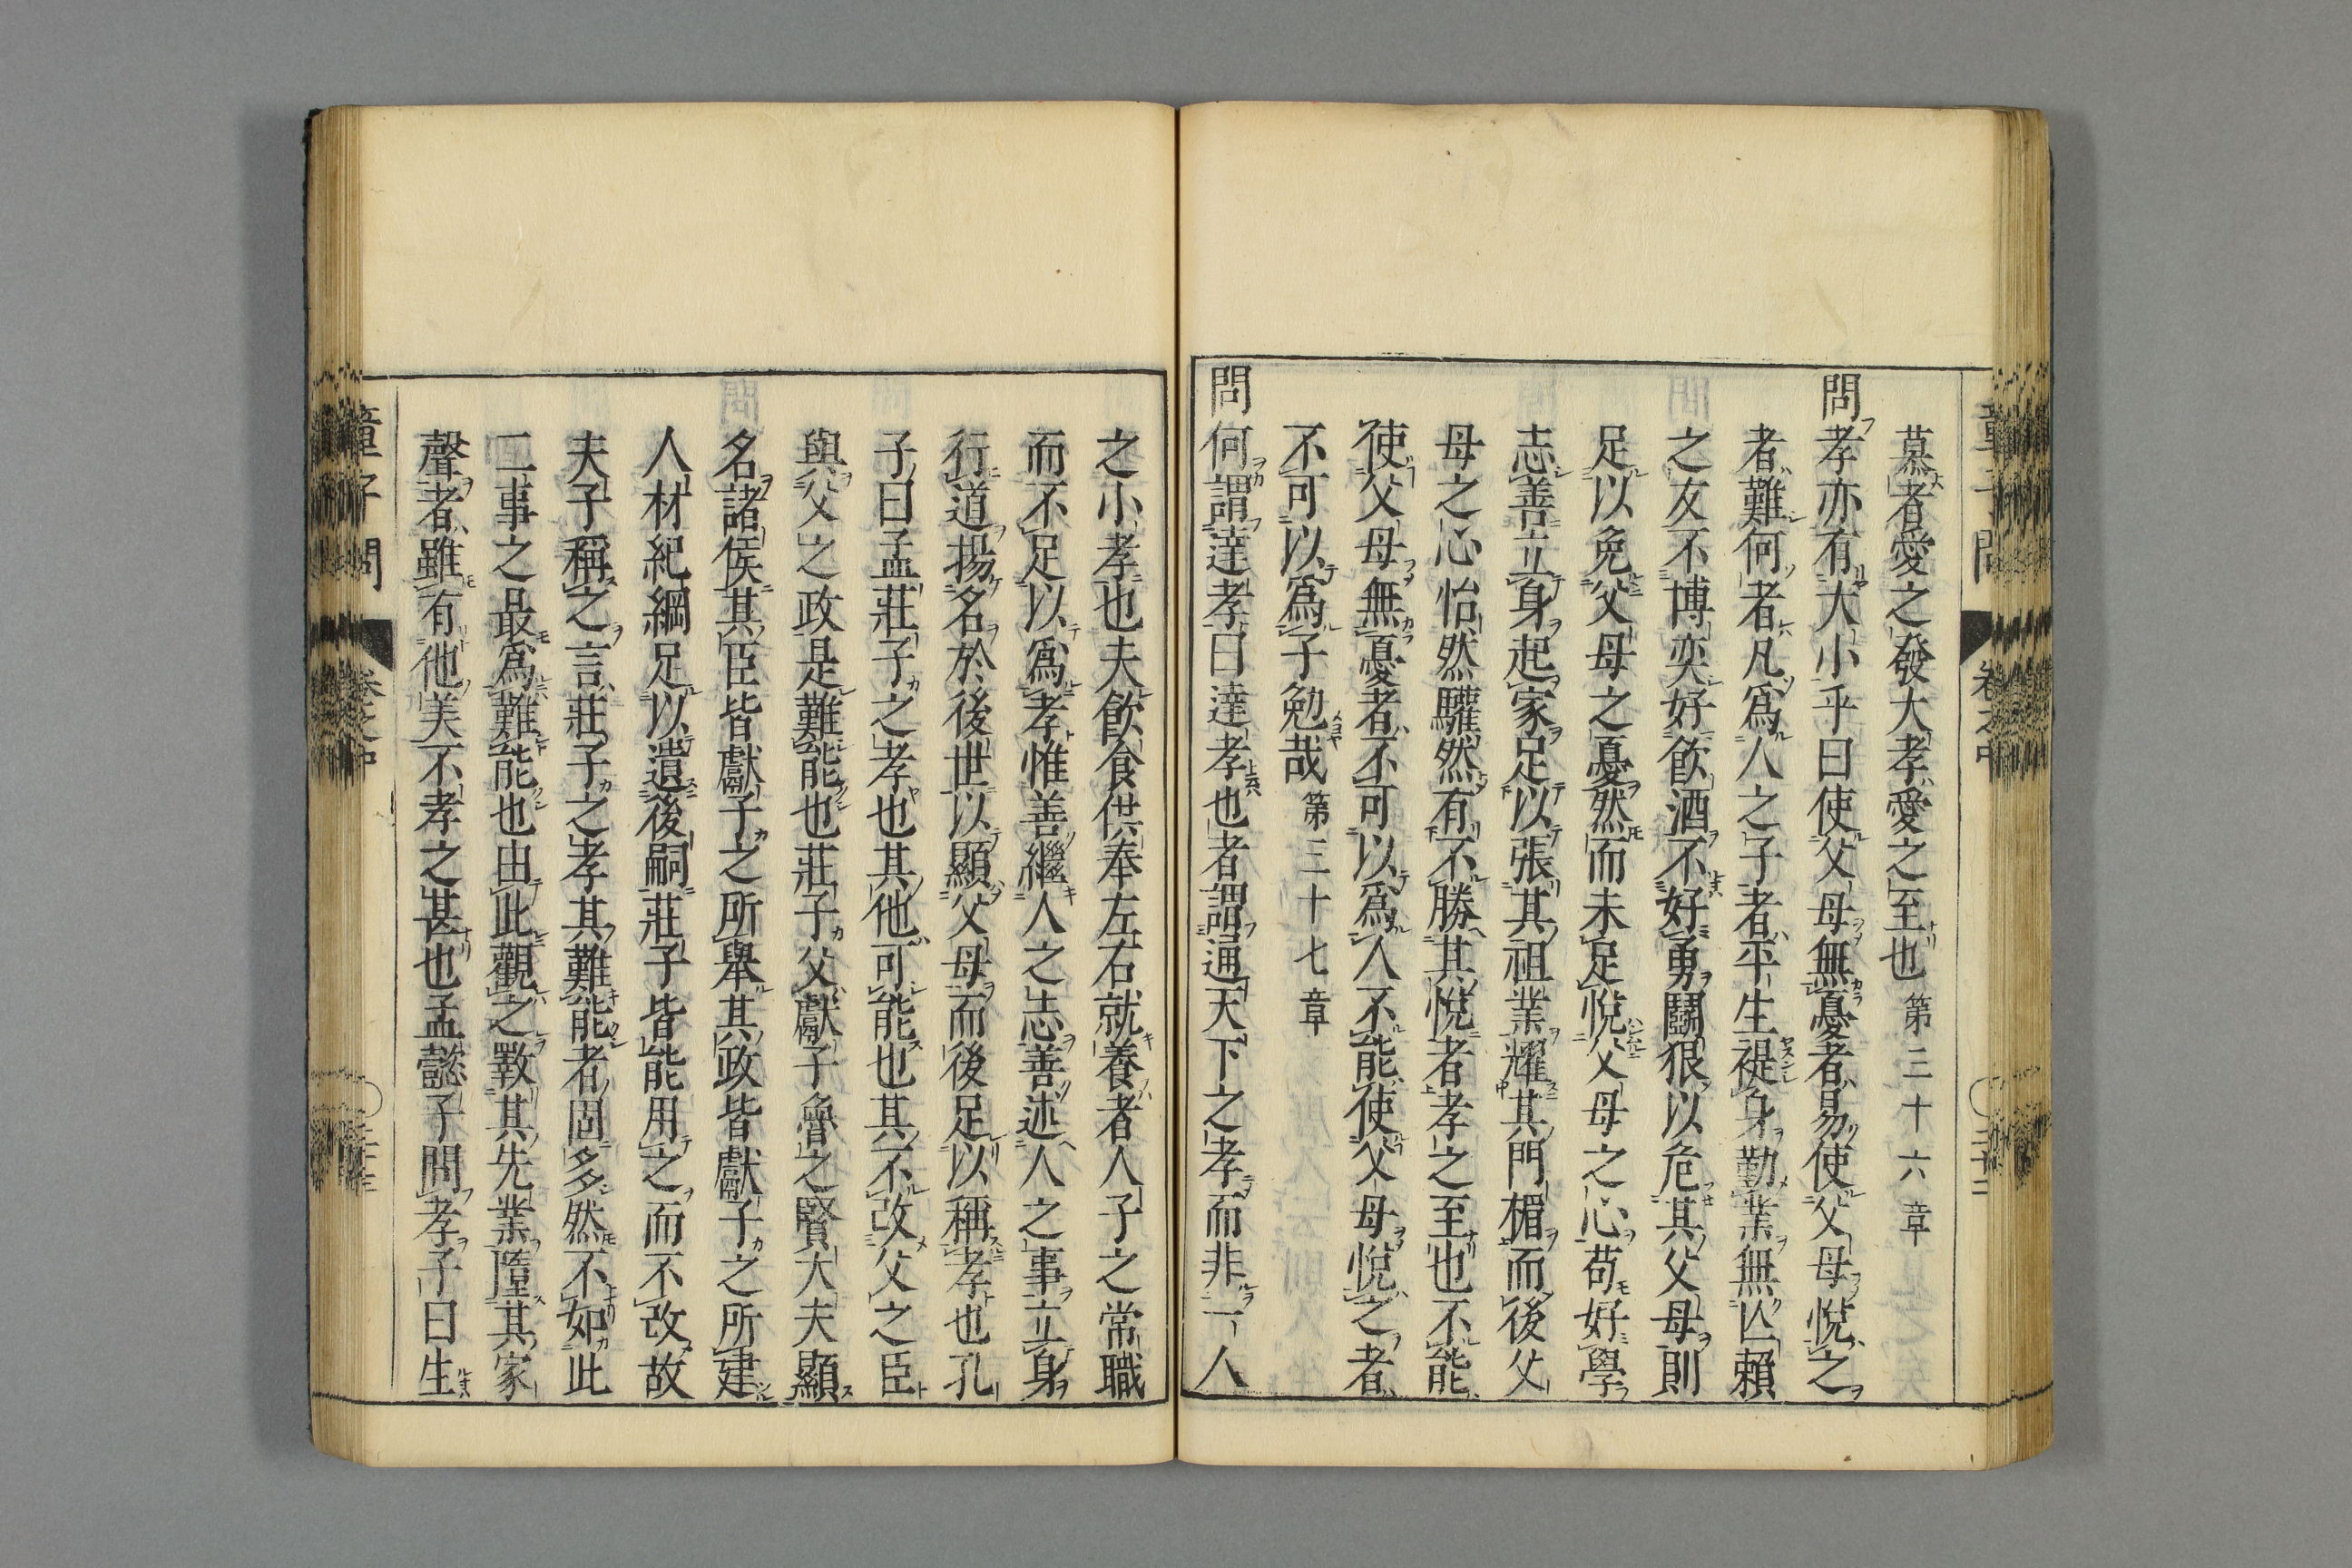 慕者愛之發大孝愛之至也 第三十六章
問孝亦有大小乎曰使父母無憂者易使父母悅之
者難何者凡爲人之子者平生禔身勤業無匹賴
之友不博奕好飲酒不好勇鬪狠以危其父母則
足以免父母之憂然而未足悅父母之心苟好學
志善立身起家足以張其祖業耀其門楣而後父
母之心怡然驩然有不勝其悅者孝之至也不能
使父母無憂者不可以爲人不能使父母悅之者
不可以爲子勉哉 第三十七章
問何謂達孝曰達孝也者謂通天下之孝而非一人
之小孝也夫飲食供奉左右就養者人子之常職
而不足以爲孝惟善繼人之志善述人之事立身
行道揚名於後世以顯父母而後足以稱孝也孔
子曰孟莊子之孝也其他可能也其不改父之臣
與父之政是難能也莊子父獻子魯之賢大夫顯
名諸侯其臣皆獻子之所舉其政皆獻子之所建
人材紀綱足以遺後嗣莊子皆能用之而不改故
夫子稱之言莊子之孝其難能者固多然不如此
二事之最爲難能也由此觀之斁其先業隳其家
聲者雖有他美不孝之甚也孟懿子問孝子曰生
童子問 卷之中